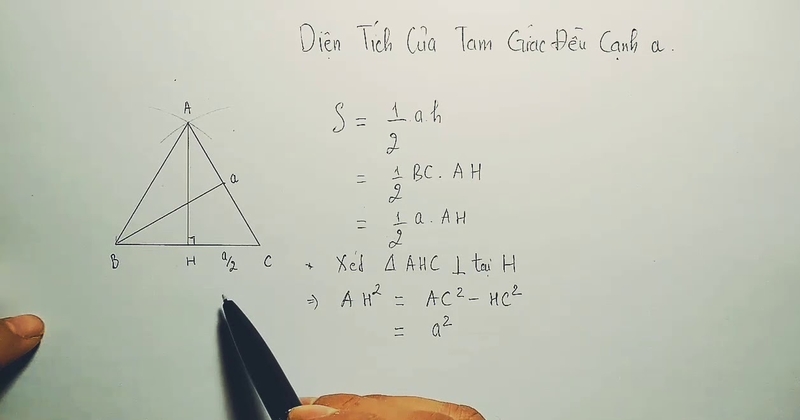 Diện Tích Của Tam Giác Đều Cạnh a.
A
S = 1/2 a.h
= 1/2 BC. AH
a
= 1/2 a. AH
B H a/2 C
* Xét Δ AHC ⊥ tại H
=> AH² = AC² - HC²
= a²